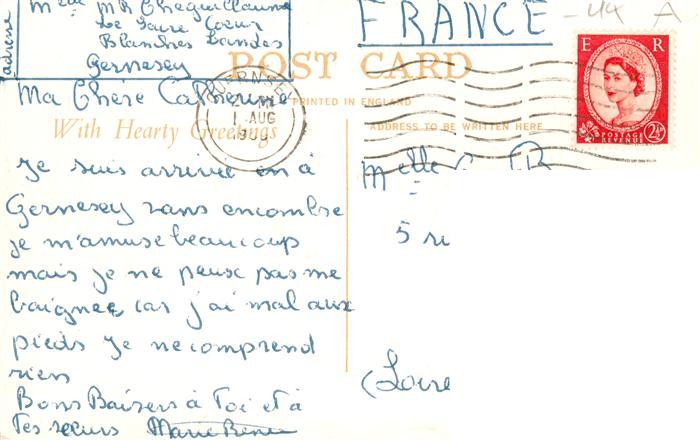 adresse
Melle MR Cheguillaume
Le Sacré Coeur
Blanches Landes
Gernesey
FRANCE
44 A
POST CARD
PRINTED IN ENGLAND
With Hearty Greetings
ADDRESS TO BE WRITTEN HERE
GUERNSEY
1 AUG
E R
POSTAGE
REVENUE
2½
Ma Chère Catherine
Je suis arrivée en à
Gernesey sans encombre
je m'amuse beaucoup
mais je ne peux pas me
baignee, car j'ai mal aux
pieds Je ne comprend
rien
Bons Baisers à Toi et à
Tes soeurs Marie Renée
Melle
5 ru
(Loire